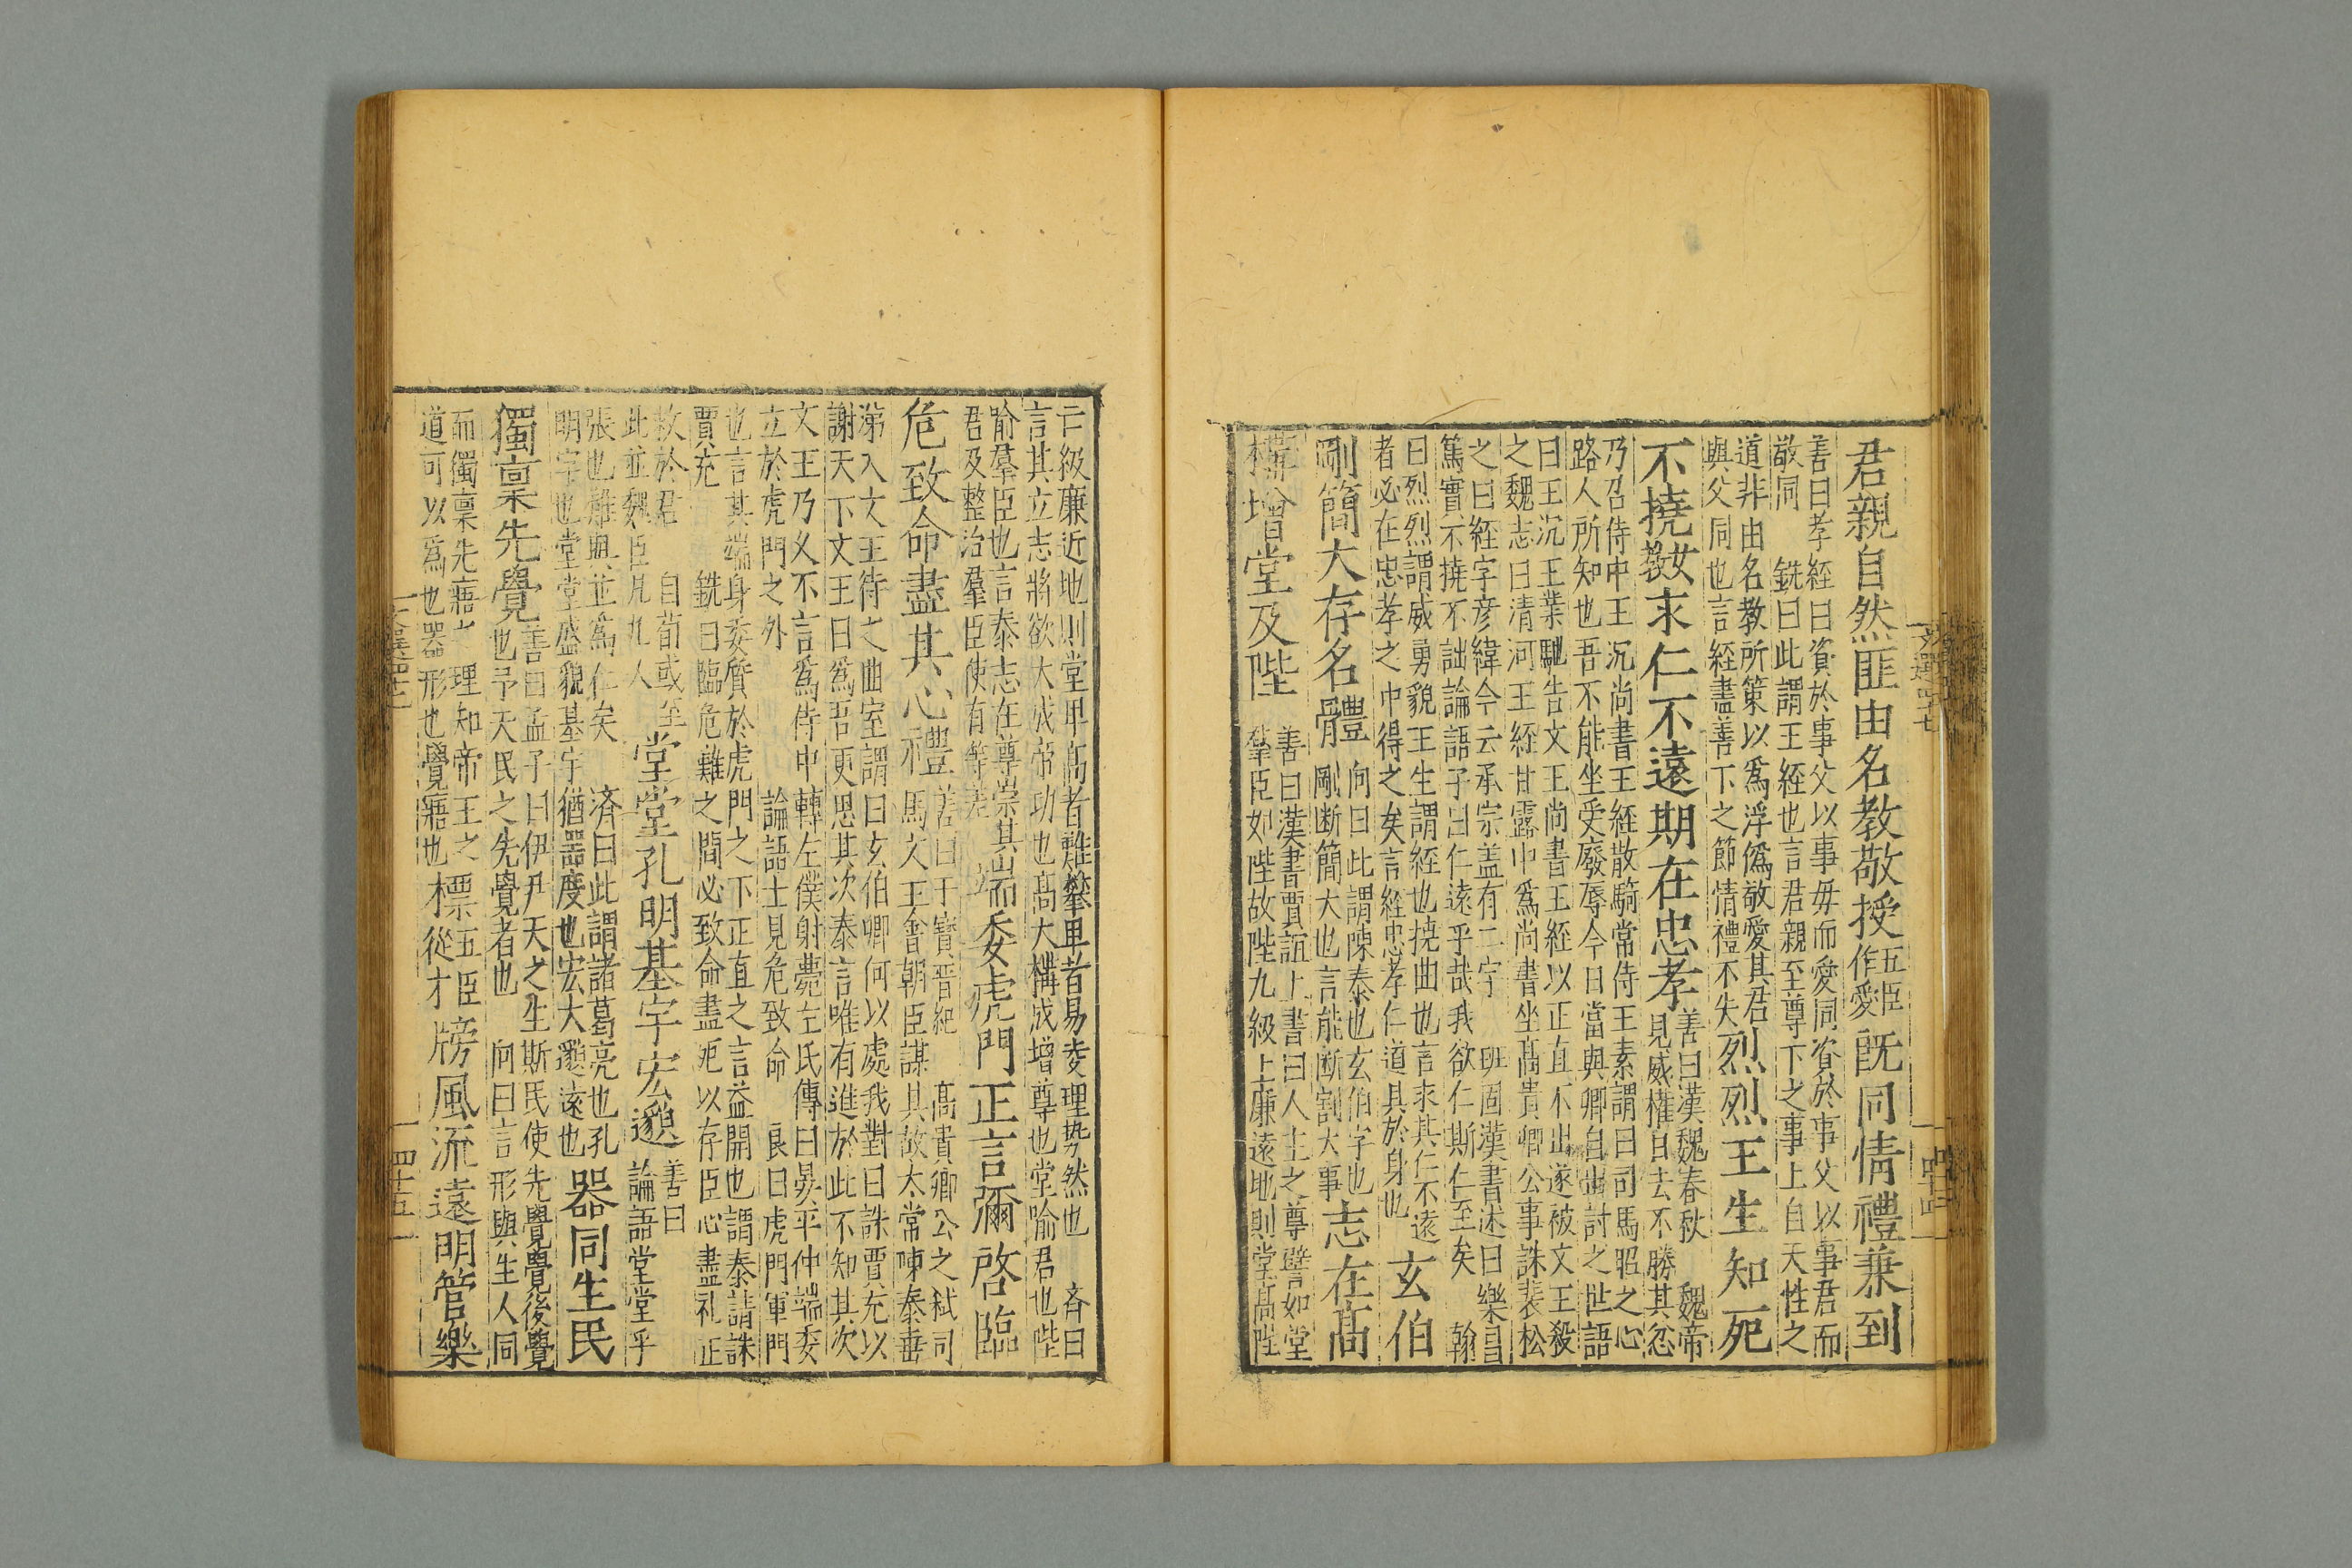 君親自然匪由名教敬授五臣作愛既同情禮兼到
善曰孝經曰資於事父以事母而愛同資於事父以事君而
敬同 銑曰此謂王經也言君親至尊下之事上自天性之
道非由名教所策以爲浮僞敬愛其君
與父同也言經盡善下之節情禮不失烈烈王生知死
不撓敎求仁不遠期在忠孝善曰漢魏春秋 魏帝
見威權日去不勝其忿
乃召侍中王沉尚書王經散騎常侍王素謂曰司馬昭之心
路人所知也吾不能坐受廢辱今日當與卿自出討之世語
曰王沉王業馳告文王尚書王經以正直不出遂被文王殺
之魏志曰清河王經甘露中爲尚書坐高貴卿公事誅裴松
之曰經字彦緯今云承宗盖有二字 班固漢書述曰樂昌
篤實不撓不詘論語子曰仁遠乎哉我欲仁斯仁至矣 翰
曰烈烈謂威勇貌王生謂經也撓曲也言求其仁不遠
者必在忠孝之中得之矣言經忠孝仁道具於身也 玄伯
剛簡大存名體向曰此謂陳泰也玄伯字也
剛断簡大也言能断割大事志在高
構增堂及陛善曰漢書賈誼上書曰人主之尊譬如堂
羣臣如陛故陛九級上廉遠地則堂高陛
亡級廉近地則堂卑高者難攀卑者易陵理势然也 濟曰
言其立志將欲大成帝功也高大構成增尊也堂喻君也陛
喻羣臣也言泰志在尊崇其
君及整治羣臣使有等差 端委虎門正言彌啓臨
危致命盡其心禮善曰干寶晋紀 高貴卿公之弒司
馬文王會朝臣謀其故太常陳泰垂
涕入文王待之曲室謂曰玄伯卿何以處我對曰誅賈充以
謝天下文王曰爲吾更思其次泰言唯有進於此不知其次
文王乃乂不言爲侍中轉左僕射薨左氏傳曰晏平仲端委
立於虎門之外 論語士見危致命 良曰虎門軍門
也言其端身委質於虎門之下正直之言益開也謂泰請誅
賈充 銑曰臨危難之間必致命盡死以存臣心盡礼正
救於君 自荀或至
此並魏臣凡九人 堂堂孔明基宇宏邈善曰
論語堂堂乎
張也難與並爲仁矣 済曰此謂諸葛亮也孔
明字也堂堂盛貌基宇猶器度也宏大邈遠也器同生民
獨禀先覺善曰孟子曰伊尹天之生斯民使先覺覺後覺
也予天民之先覺者也 向曰言形與生人同
而獨稟先寤之理知帝王之
道可以爲也器形也覺寤也標五臣
從才牓風流遠明管樂
文選四十七
四十四
四十五